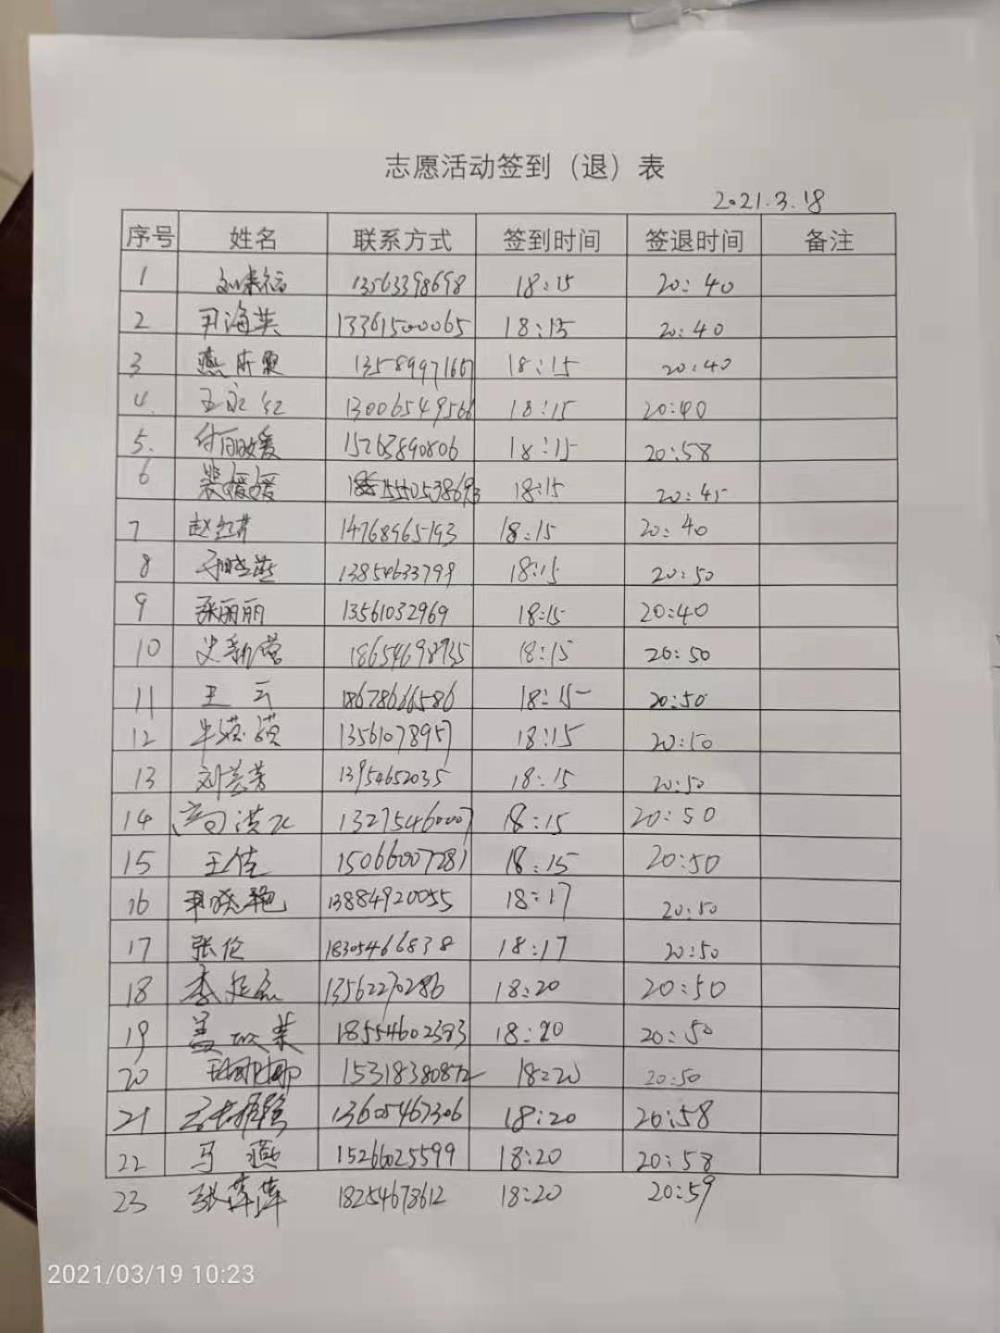 志愿活动签到（退）表
2021.3.18
序号 姓名 联系方式 签到时间 签退时间 备注
1 刘来福 13563398698 18:15 20:40
2 尹海英 13361500065 18:15 20:40
3 燕 13589971667 18:15 20:40
4. 王永红 13006549566 18:15 20:40
5. 付丽媛 15263890806 18:15 20:58
6 裴媛媛 18:15 20:45
7 赵红芹 14768965193 18:15 20:40
8 13854633799 18:15 20:50
9 张丽丽 13561032969 18:15 20:40
10 史新营 18654698935 18:15 20:50
11 王云 18678666586 18:15 20:50
12 牛 13561078957 18:15 20:50
13 刘芳 13954652035 18:15 20:50
14 高洪 13275460007 18:15 20:50
15 王佳 15066007281 18:15 20:50
16 尹晓艳 13884920055 18:17 20:50
17 张伦 18305466838 18:17 20:50
18 李 13562270286 18:20 20:50
19 盖 18554602393 18:20 20:50
20 娜娜 15318380872 18:20 20:50
21 13605467306 18:20 20:58
22 马燕 15266025599 18:20 20:58
23 张萍萍 18254678612 18:20 20:59
2021/03/19 10:23